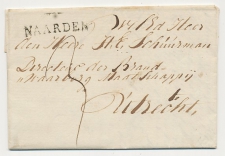 NAARDEN
den Heere A. E. Schuurman
Directeur der Brand
Waarborg Maatschappij
Utrecht